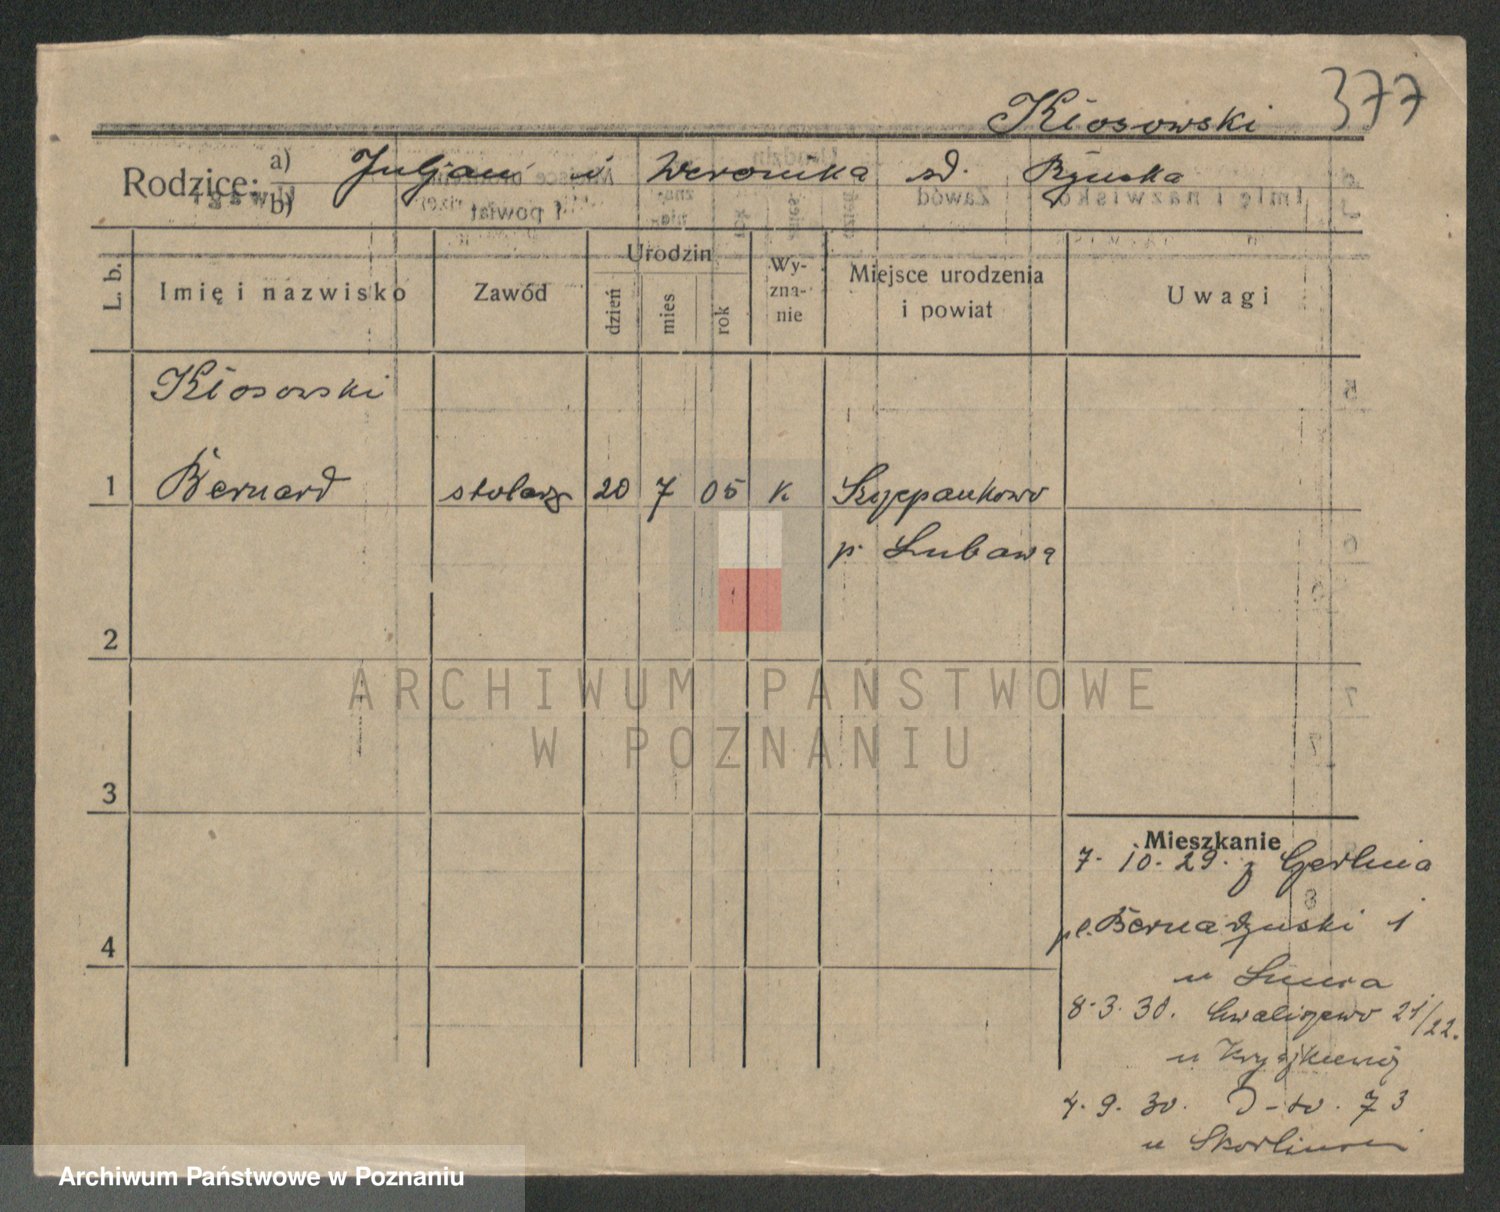 Kłosowski 377
Rodzice: a) Juljan i Weronika zd. Rzyńska
b)
L. b. Imię i nazwisko Zawód Urodzin dzień mies rok Wy-zna-nie Miejsce urodzenia i powiat Uwagi
Kłosowski
1 Bernard stolarz 20 7 05 K Szczepankowo
p. Lubawa
2
3
4
Mieszkanie
7. 10. 29. z
pl. Bernadyński 1
u
8. 3. 30. Chwaliszewo 21/22.
u
4. 9. 30. 73
u
ARCHIWUM PAŃSTWOWE
W POZNANIU
Archiwum Państwowe w Poznaniu